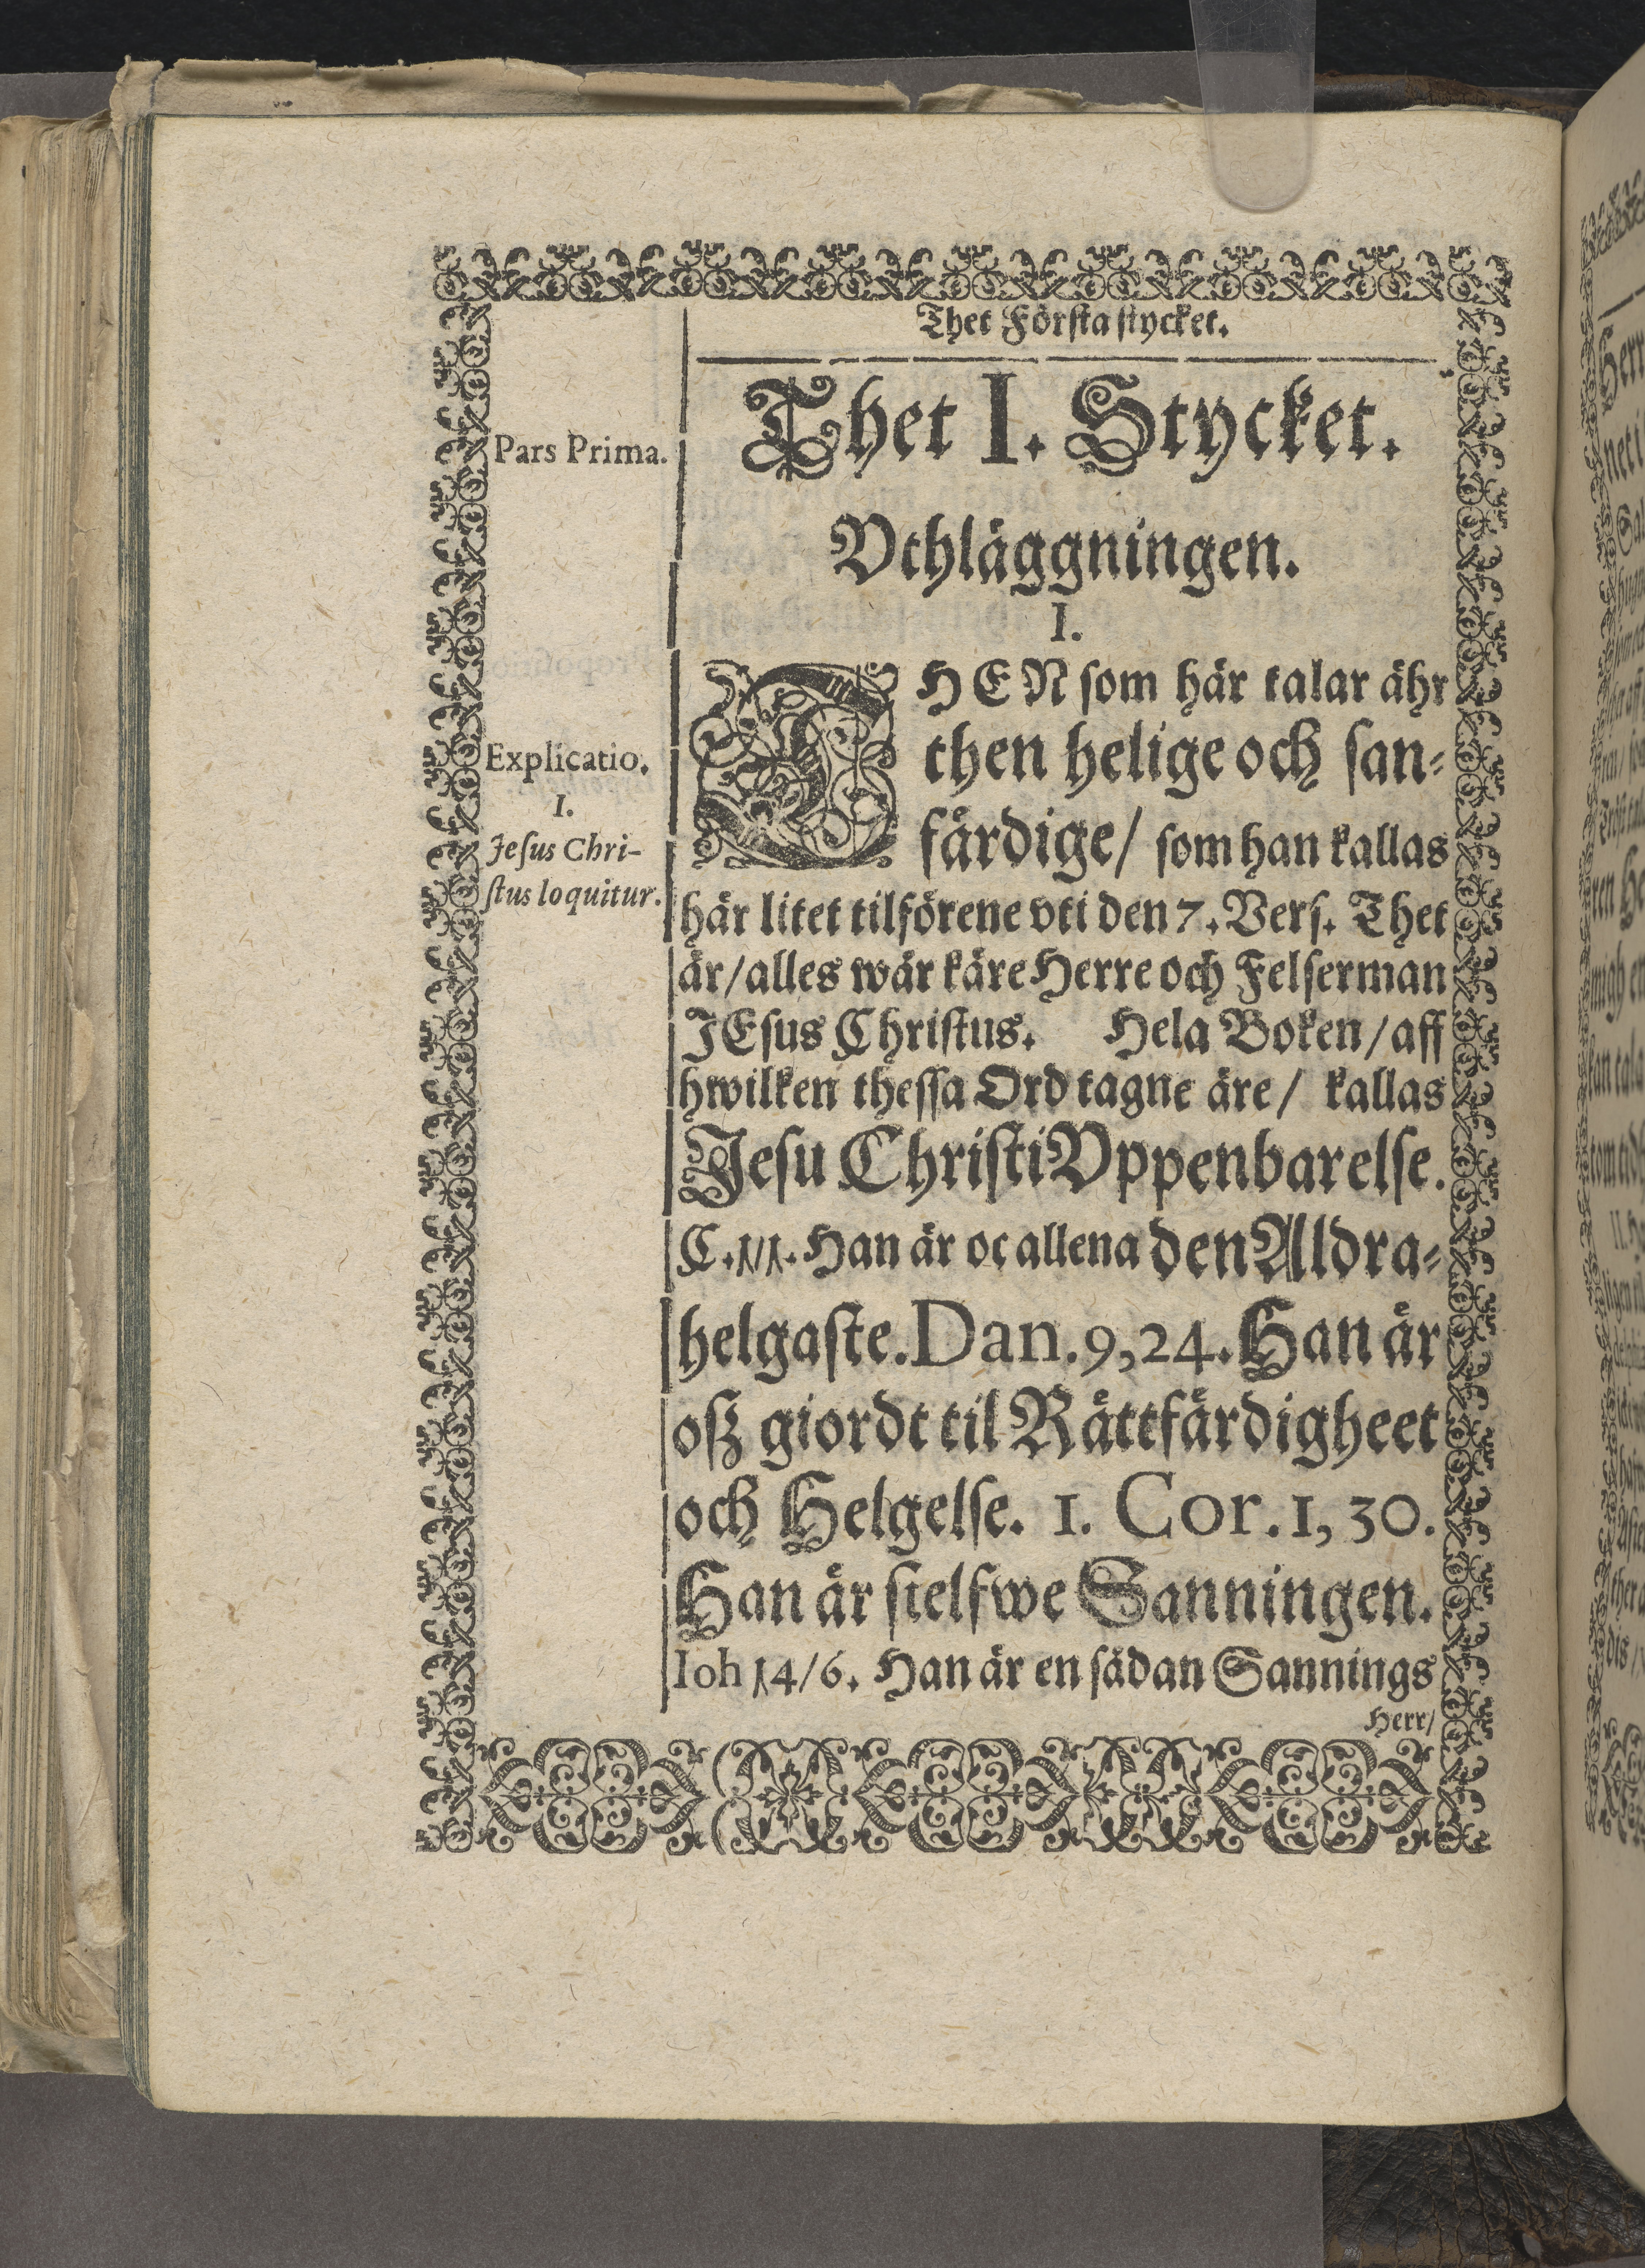 Thet Förſta ſtycket.
Pars Prima.
Thet I. Stycket.
Vthläggningen.
I.
THEN ſom här talar ähr
then helige och ſan-
färdige/ ſom han kallas
här litet tilförene vti den 7. Verſ. Thet
är/ alles wår käre Herre och Felſerman
JEſus Chriſtus. Hela Boken/ aff
hwilken theſſa Ord tagne äre/ kallas
Jeſu Chriſti Vppenbarelſe.
C.1/1. Han är oc allena den Aldra-
helgaſte. Dan. 9, 24. Han är
oſz giordt til Rättfärdigheet
och Helgelſe. 1. Cor. 1, 30.
Han är ſielfwe Sanningen.
Ioh 14/6. Han är en ſådan Sannings
Herr/
Explicatio.
I.
Jeſus Chri-
ſtus loquitur.